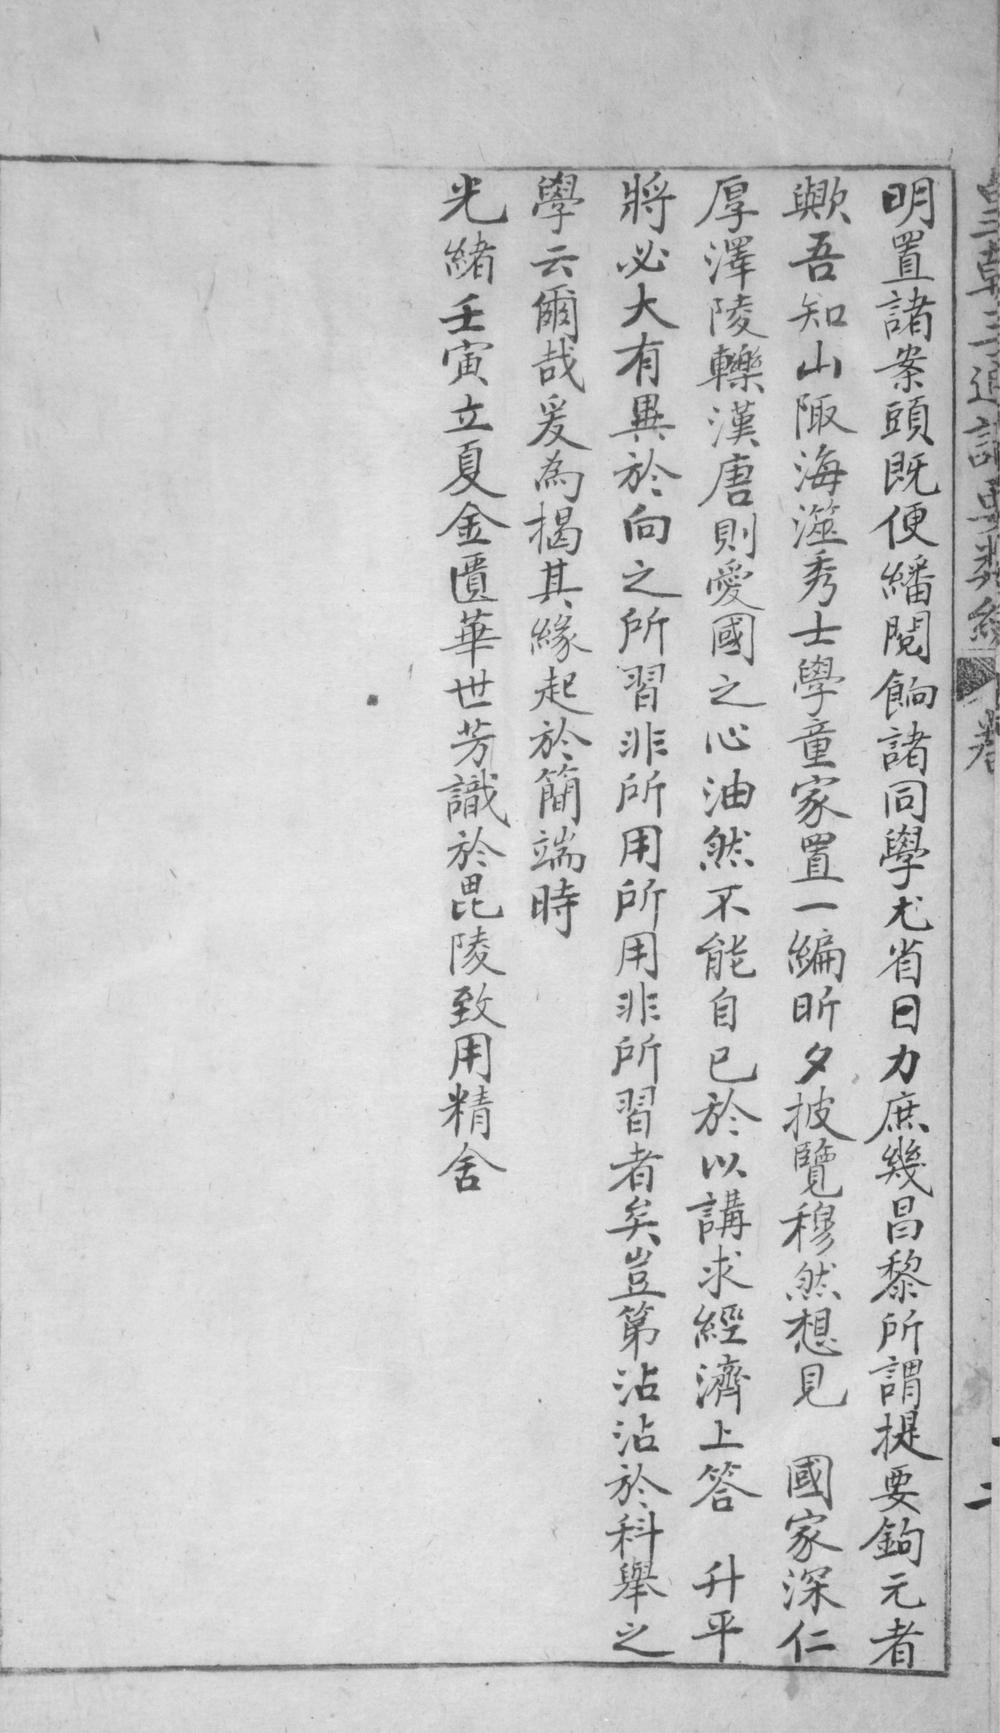 明置諸案頭既便繙閱餉諸同學尤省日力庶幾昌黎所謂提要鉤元者
歟吾知山陬海澨秀士學童家置一編昕夕披覽穆然想見　國家深仁
厚澤陵轢漢唐則愛國之心油然不能自已於以講求經濟上答　升平
將必大有異於向之所習非所用所用非所習者矣豈第沾沾於科舉之
學云爾哉爰為揭其緣起於簡端時
光緒壬寅立夏金匱華世芳識於毘陵致用精舍